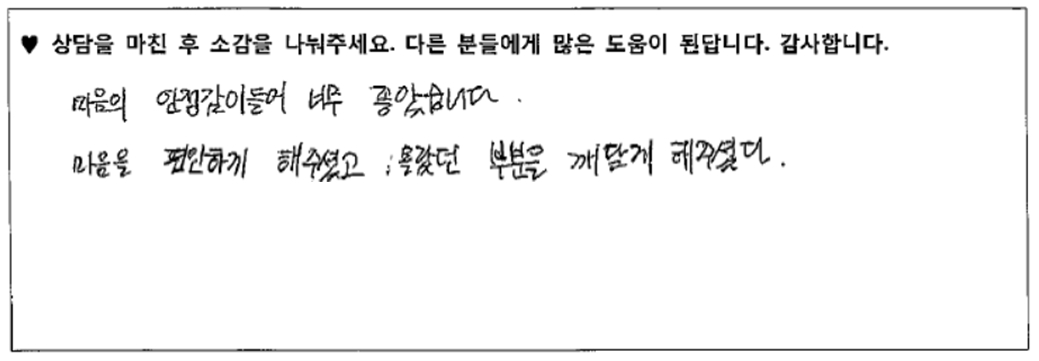 ♥ 상담을 마친 후 소감을 나눠주세요. 다른 분들에게 많은 도움이 된답니다. 감사합니다.
마음의 안정감이들어 너무 좋았습니다.
마음을 편안하게 해주셨고, 몰랐던 부분을 깨닫게 해주셨다.